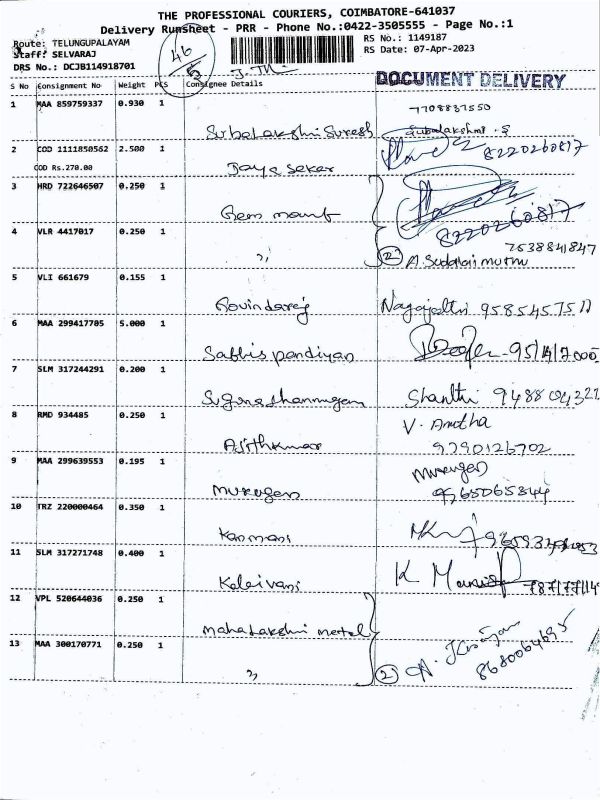 THE PROFESSIONAL COURIERS, COIMBATORE-641037
Delivery Runsheet - PRR - Phone No.:0422-3505555 - Page No.:1
Route: TELUNGUPALAYAM
Staff: SELVARAJ
DRS No.: DCJB114918701
46
RS No.: 1149187
RS Date: 07-Apr-2023
S No Consignment No Weight PCS Consignee Details
DOCUMENT DELIVERY
1 MAA 859759337 0.930 1
7708837550
Subalakshmi Suresh Subalakshmi .S
2 COD 1111850562 2.500 1
8220260817
COD Rs.270.00
Daya Sekar
3 HRD 722646507 0.250 1
8220260817
4 VLR 4417017 0.250 1
7538841847
" 2 A. Sudalai muthu
5 VLI 661679 0.155 1
Govindaraj
6 MAA 299417705 5.000 1
Sabbis pandiyan
7 SLM 317244291 0.200 1
Suganashanmugam Shanthi
8 RMD 934485 0.250 1
V. Anitha
Ajithkumar 9790126702
9 MAA 299639553 0.195 1
Murugan
Murugan 9365065844
10 TRZ 220000464 0.350 1
Kanmani
11 SLM 317271748 0.400 1
Kalaivani K
12 VPL 520644036 0.250 1
Mahalakshmi metal
13 MAA 300170771 0.250 1
" 2 8680064695